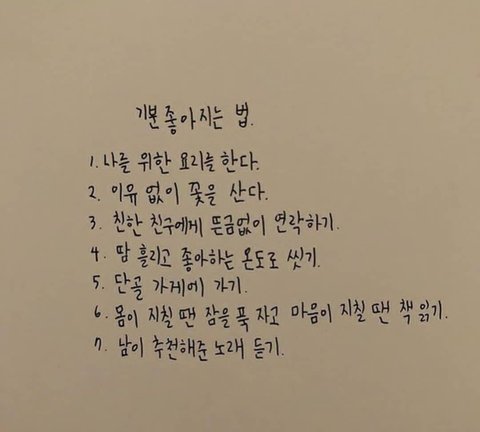 기분 좋아지는 법.
1. 나를 위한 요리를 한다.
2. 이유 없이 꽃을 산다.
3. 친한 친구에게 뜬금없이 연락하기.
4. 땀 흘리고 좋아하는 온도로 씻기.
5. 단골 가게에 가기.
6. 몸이 지칠 땐 잠을 푹 자고 마음이 지칠 땐 책 읽기.
7. 남이 추천해준 노래 듣기.